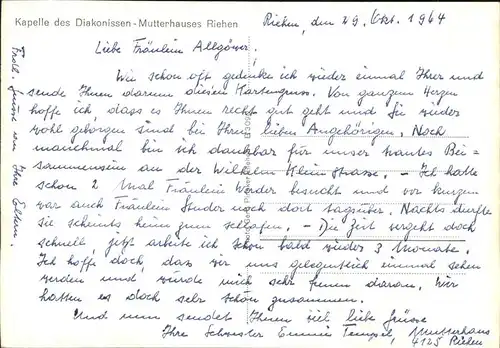 Kapelle des Diakonissen-Mutterhauses Riehen
Riehen, den 29. Okt. 1964
Liebe Fräulein Allgöwer,
Wie schon oft gedenke ich wieder einmal Ihrer und
sende Ihnen darum diesen Kartengruss. Von ganzem Herzen
hoffe ich, dass es Ihnen recht gut geht und Sie wieder
wohl geborgen sind bei Ihren lieben Angehörigen. Noch
manchmal bin ich dankbar für unser trautes Bei-
sammensein an der Wilhelm Kleinstrasse. - Ich hatte
schon 2 Mal Fräulein besucht und vor kurzem
war auch Fräulein Studer noch dort tagsüber. Nachts durfte
sie scheints heim zum schlafen. - Die Zeit vergeht doch
schnell, jetzt arbeite ich schon bald wieder 3 Monate.
Ich hoffe doch, dass wir uns gelegentlich einmal sehen
werden und würde mich sehr freuen daran. Wir
hatten es doch sehr schön zusammen.
Und nun sendet Ihnen viel liebe Grüsse
Ihre Schwester Emmie Tempel, Mutterhaus
4125 Riehen
Frdl. Grüsse an Ihre Eltern.